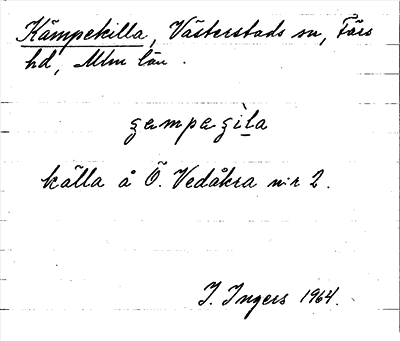 Kämpekilla, Västerstads sn, Färs
hd, Mlm län.
källa å Ö. Vedåkra nr 2.
I. Ingers 1964.